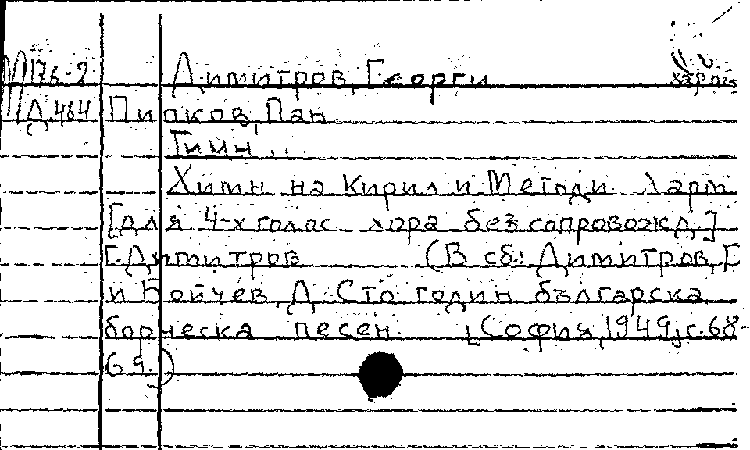 П176-2 Димитров, Георги
Д.464 Пипков, Пан
Гимн...
Химн на Кирил и Методи. Харм.
[для 4-х голас. хора без сопровожд.]
Г. Димитров (В сб.: Димитров, Г.
и Бойчев, Д. Сто годин българска
борческа песен. [София, 1949], с. 68-
69.)